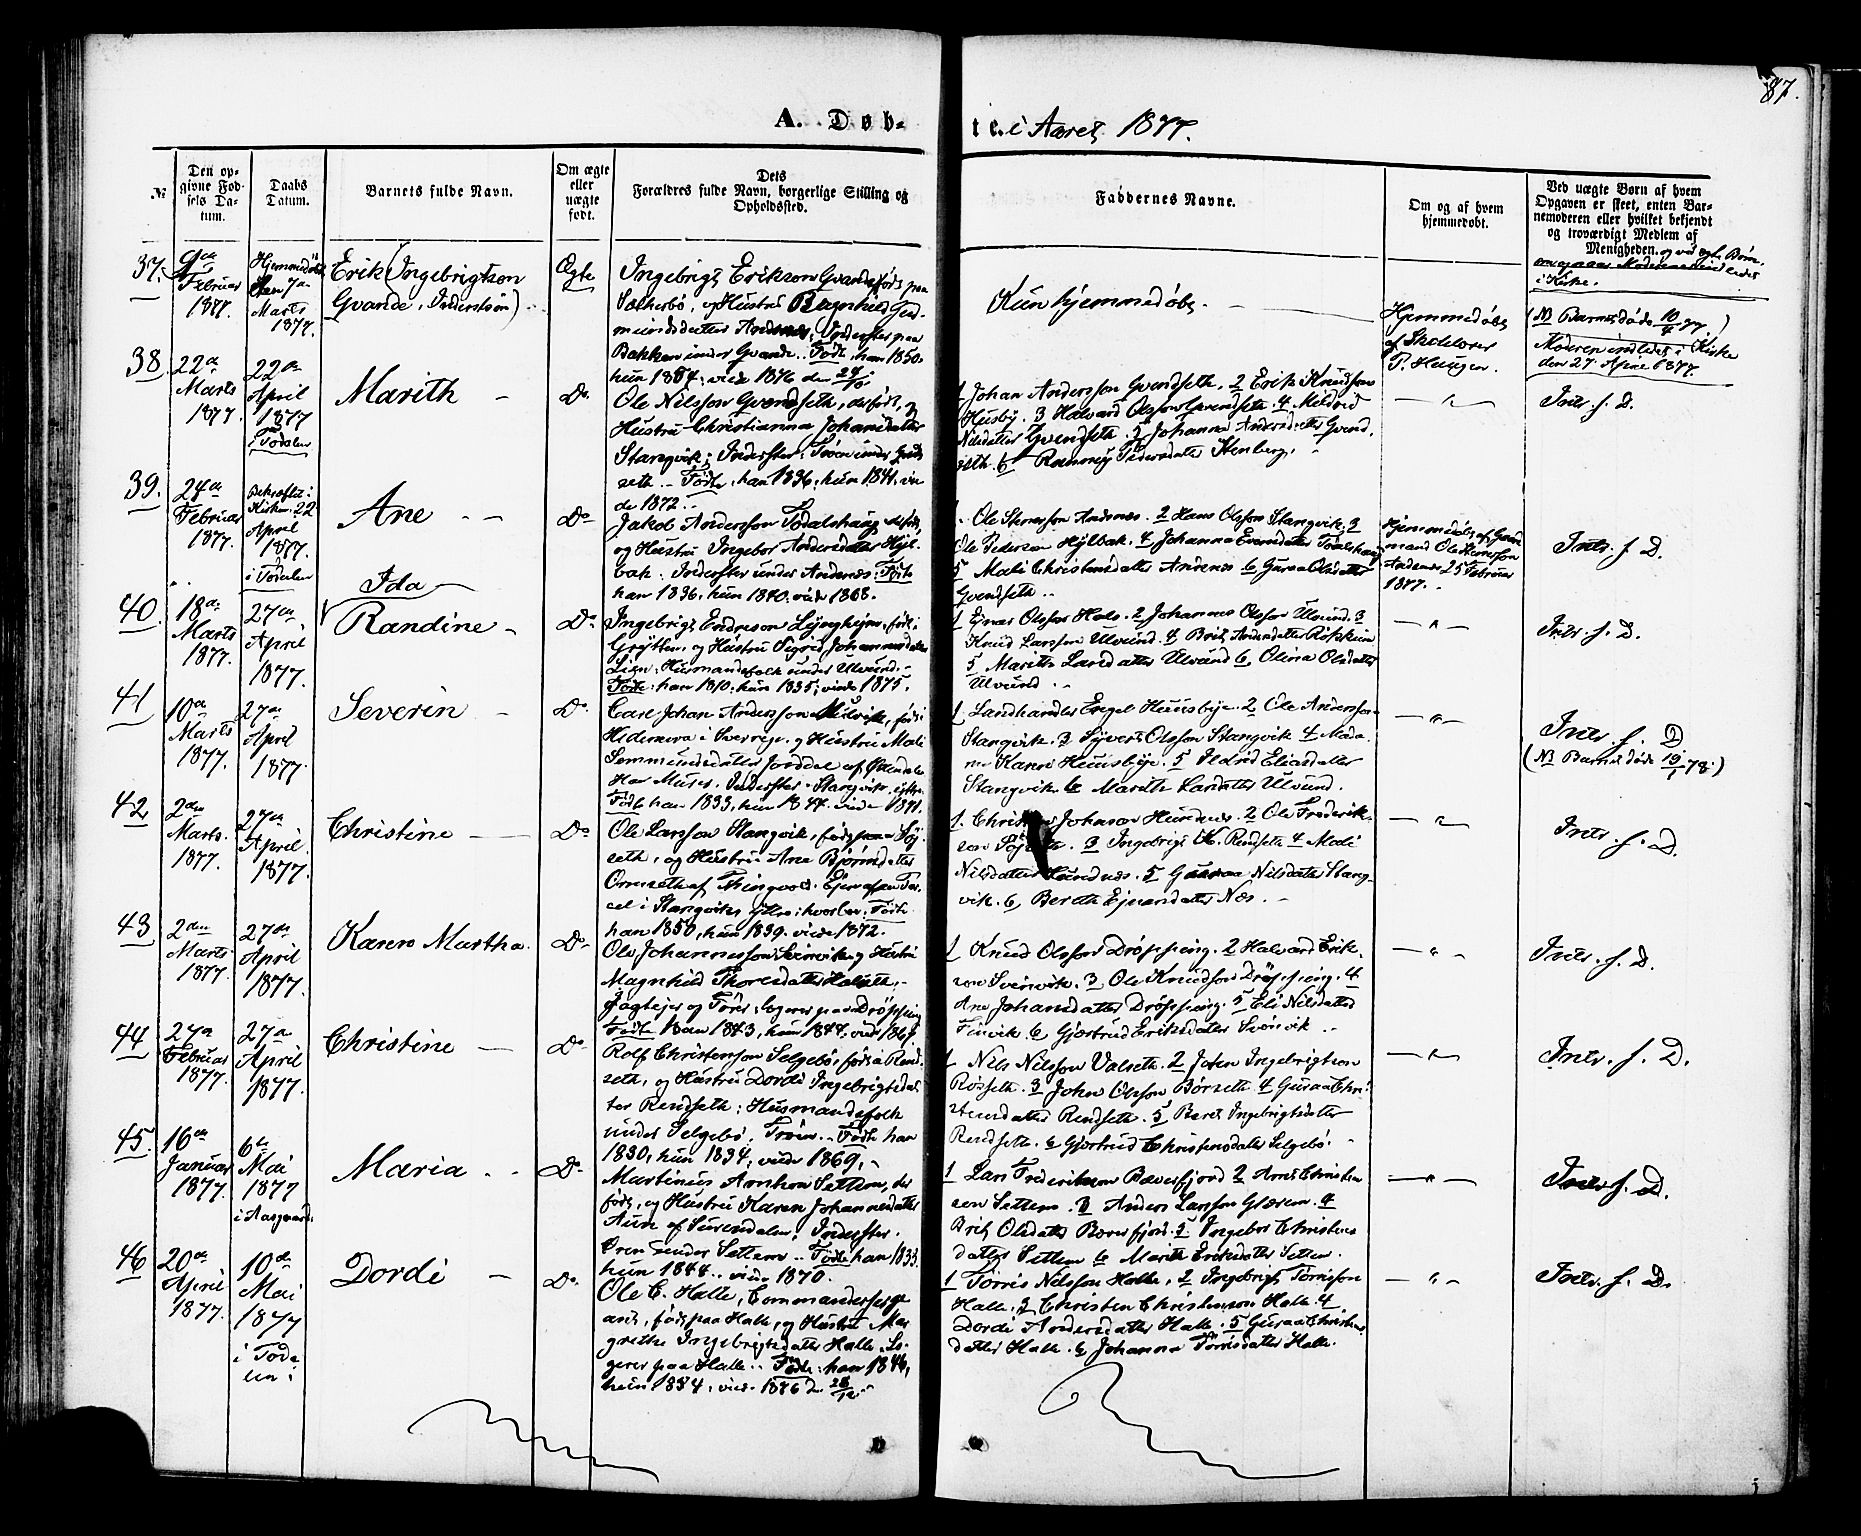 87.
A. Døb-
te. i Aaret 1877.
№
Den op-
givne Fød-
sels Da-
tum.
Daabs
Datum.
Barnets fulde Navn.
Om ægte
eller
uægte
født.
Dets
Forældres fulde Navn, borgerlige Stilling og
Opholdssted.
Faddernes Navne.
Om og af hvem
hjemmedøbt.
Ved uægte Børn af hvem
Opgaven er skeet, enten Bar-
nemoderen eller hvilket bekjendt
og troværdigt Medlem af
Menigheden.
i Kirke.
37.
Februar
1877.
Hjemmedøbt
Marts
1877.
Erik (Ingebrigtson
Gvande, Inderstuen)
Ægte
Ingebrigt Erikson Gvande, født paa
Sæterbø, og Hustru Ragnhild Gud-
mundsdatter Andenes, Inderster paa
Bakken under Gvande. Født: han 1850.
Kun hjemmedøbt.
Hjemmedøbt
af Skolelærer
P. Haugen.
(NB Barnet døde 10/4 77.)
Moderen indledet i Kirke
den 27 April 1877.
38.
22de
Marts
1877.
22de
April
1877
i Todalen
Marith
Do.
Ole Nilsson Gvendseth, dsfødt, og
Hustru Christianna Johansdatter
Stangvik; Inderster, Trøen under Gvend-
seth. Født: han 1836, hun 1844, vie-
de 1872.
1 Johan Andersson Gvendseth. 2 Erik Knudson
Husby. 3 Halvard Olsson Gvendseth. 4 Meldrid
Nilsdatter Gvendseth. 5 Johanna Andersdatter Gvend-
seth. 6 Pedersdatter Stenberg.
— " —
Intr. f. D.
39.
24de
Februar
1877.
Bekræftet i
Kirken 22
April
1877.
i Todalen
Ane
Do
Jakob Andersson Todalshaug, dsfødt,
og Hustru Ingebor Andersdatter Hyl-
bak. Inderster under Andenæs. Født:
han 1836, hun 1840. viede 1868.
Ole Stenersson Andenæs. 2 Hans Olsson Stangvik. 3
Ole Pederson Hylbak. 4 Johanna Evensdatter Todalshaug
5 Mali Christensdatter Andenes 6 Guraa Olsdatter
Gvendseth.
Hjemmedøbt af Gaard-
mand Ole Stenersson
Andenæs 25 Februar
1877.
Intr. f. D.
40.
18de
Marts
1877.
27de
April
1877.
Ida
Randine
Do.
Ingebrigt Endreson Lynghjem, født i
Grytten, og Hustru Sigrid Johannesdatter
Lien. Husmandsfolk under Ulvund.
Født: han 1810, hun 1835, viede 1875.
1 Ejnar Olsson Hals. 2 Johannes Olsson Ulvund. 3
Knud Larsson Ulvund. 4 Brit Andersdatter
5 Marith Larsdatter Ulvund 6 Olina Olsdatter
Ulvund.
— " —
Intr. f. D.
41
10de
Marts
1877.
27de
April
1877.
Severin
Do.
Carl Johan Andersson, født i
Hedemora i Sverrige, og Hustru Mali
Stangvik
Født han 1833, hun 1844. viede 1871.
1 Landhandler Engel Huusbye. 2 Ole Anderson
Stangvik. 3 Syvert Olsson Stangvik 4 Mada-
me Karen Huusbye. 5 Ildrid Eliasdatter
Stangvik 6 Marith Larsdatter Ulvund.
— " —
Intr. f. D
(NB Barnet døde 19/1 78.)
42
2den
Marts.
1877.
27de
April
1877.
Christine
Do
Ole Larsson Stangvik, født paa Søy-
seth, og Hustru Ane Bjørnsdatter
Ormseth af Thingvold. Ejer af en Par-
cel i Stangvik, ytre: hvorber. Født:
han 1850, hun 1839. viede 1872.
1. Johnson Hundnes. 2 Ole Frederik-
son 3 Ingebrigt K. Rendseth 4 Mali
Nilsdatter Hundnes. 5 Guraa Nilsdatter Stang-
vik. 6 Berith Ejnarsdatter Næs.
— " —
Intr. f. D.
43
2den
Marts
1877.
27de
April
1877.
Karen Martha.
Do.
Ole Johannesson Svinvik og Hustru
Magnhild Thoresdatter
Drøpping
Født: han 1843, hun 1844. viede 1867.
1 Knud Olsson Drøpping. 2 Halvard Erik-
son Svinvik. 3 Ole Knudson Drøpping. 4
Ane Johansdatter Drøpping. 5 Eli Nilsdatter
6 Gjertrud Eriksdatter Svinvik.
— " —
Intr. f. D.
44
Februar
1877.
27de
April
1877.
Christine
Do.
Rolf Christenson Selgebø, født a Rend-
seth, og Hustru Dordi Ingebrigtsdat-
ter Rendseth: Husmandsfolk
under Selgebø, Trøen. Født han
1830, hun 1834, viede 1869.
1 Nils Nilsson Valseth. 2 John Ingebrigtson
Røsseth. 3 John Olsson Børseth. 4 Guraa Chri-
stensdatter Rendseth. 5 Beret Ingebrigtsdatter
Rendseth. 6 Gjertrud Christensdatter Selgebø.
— " —
Intr. f. D.
45.
16de
Januar
1877.
6te
Mai
1877
i Aasgaard.
Maria
Do.
Martinus Arneson Settem, ds-
født, og Hustru Karen Johannesdatter
Aune af Surendalen; Inderster.
Øren under Settem. Født han 1833.
hun 1844. viede 1870.
1 Lars Frederikson Bæverfjord 2 Arne Christen-
sen Settem. 3 Anders Larsson Glærem. 4
Brit Olsdatter Bæverfjord. 5 Ingebor Christens-
datter Settem 6 Marith Eriksdatter Settem.
— " —
Intr. f. D.
46
20de
April
1877.
10de
Mai
1877
i Toda-
len:
Dordi
Do.
Ole C. Halle, Commandersерge-
ant, født paa Halle, og Hustru Mar-
grethe Ingebrigtsdatter Halle. Lo-
gerer paa Halle. Født: han 1846,
hun 1854, viede 1876 d. 28/12.
1 Tørris Nilsson Halle, 2 Ingebrigt Tørrisson
Halle, 3 Christen Christenson Halle. 4
Dordi Andersdatter Halle. 5 Guraa Christens-
datter Halle. 6 Johanna Tørrisdatter Halle.
— " —
Intr. f. D.